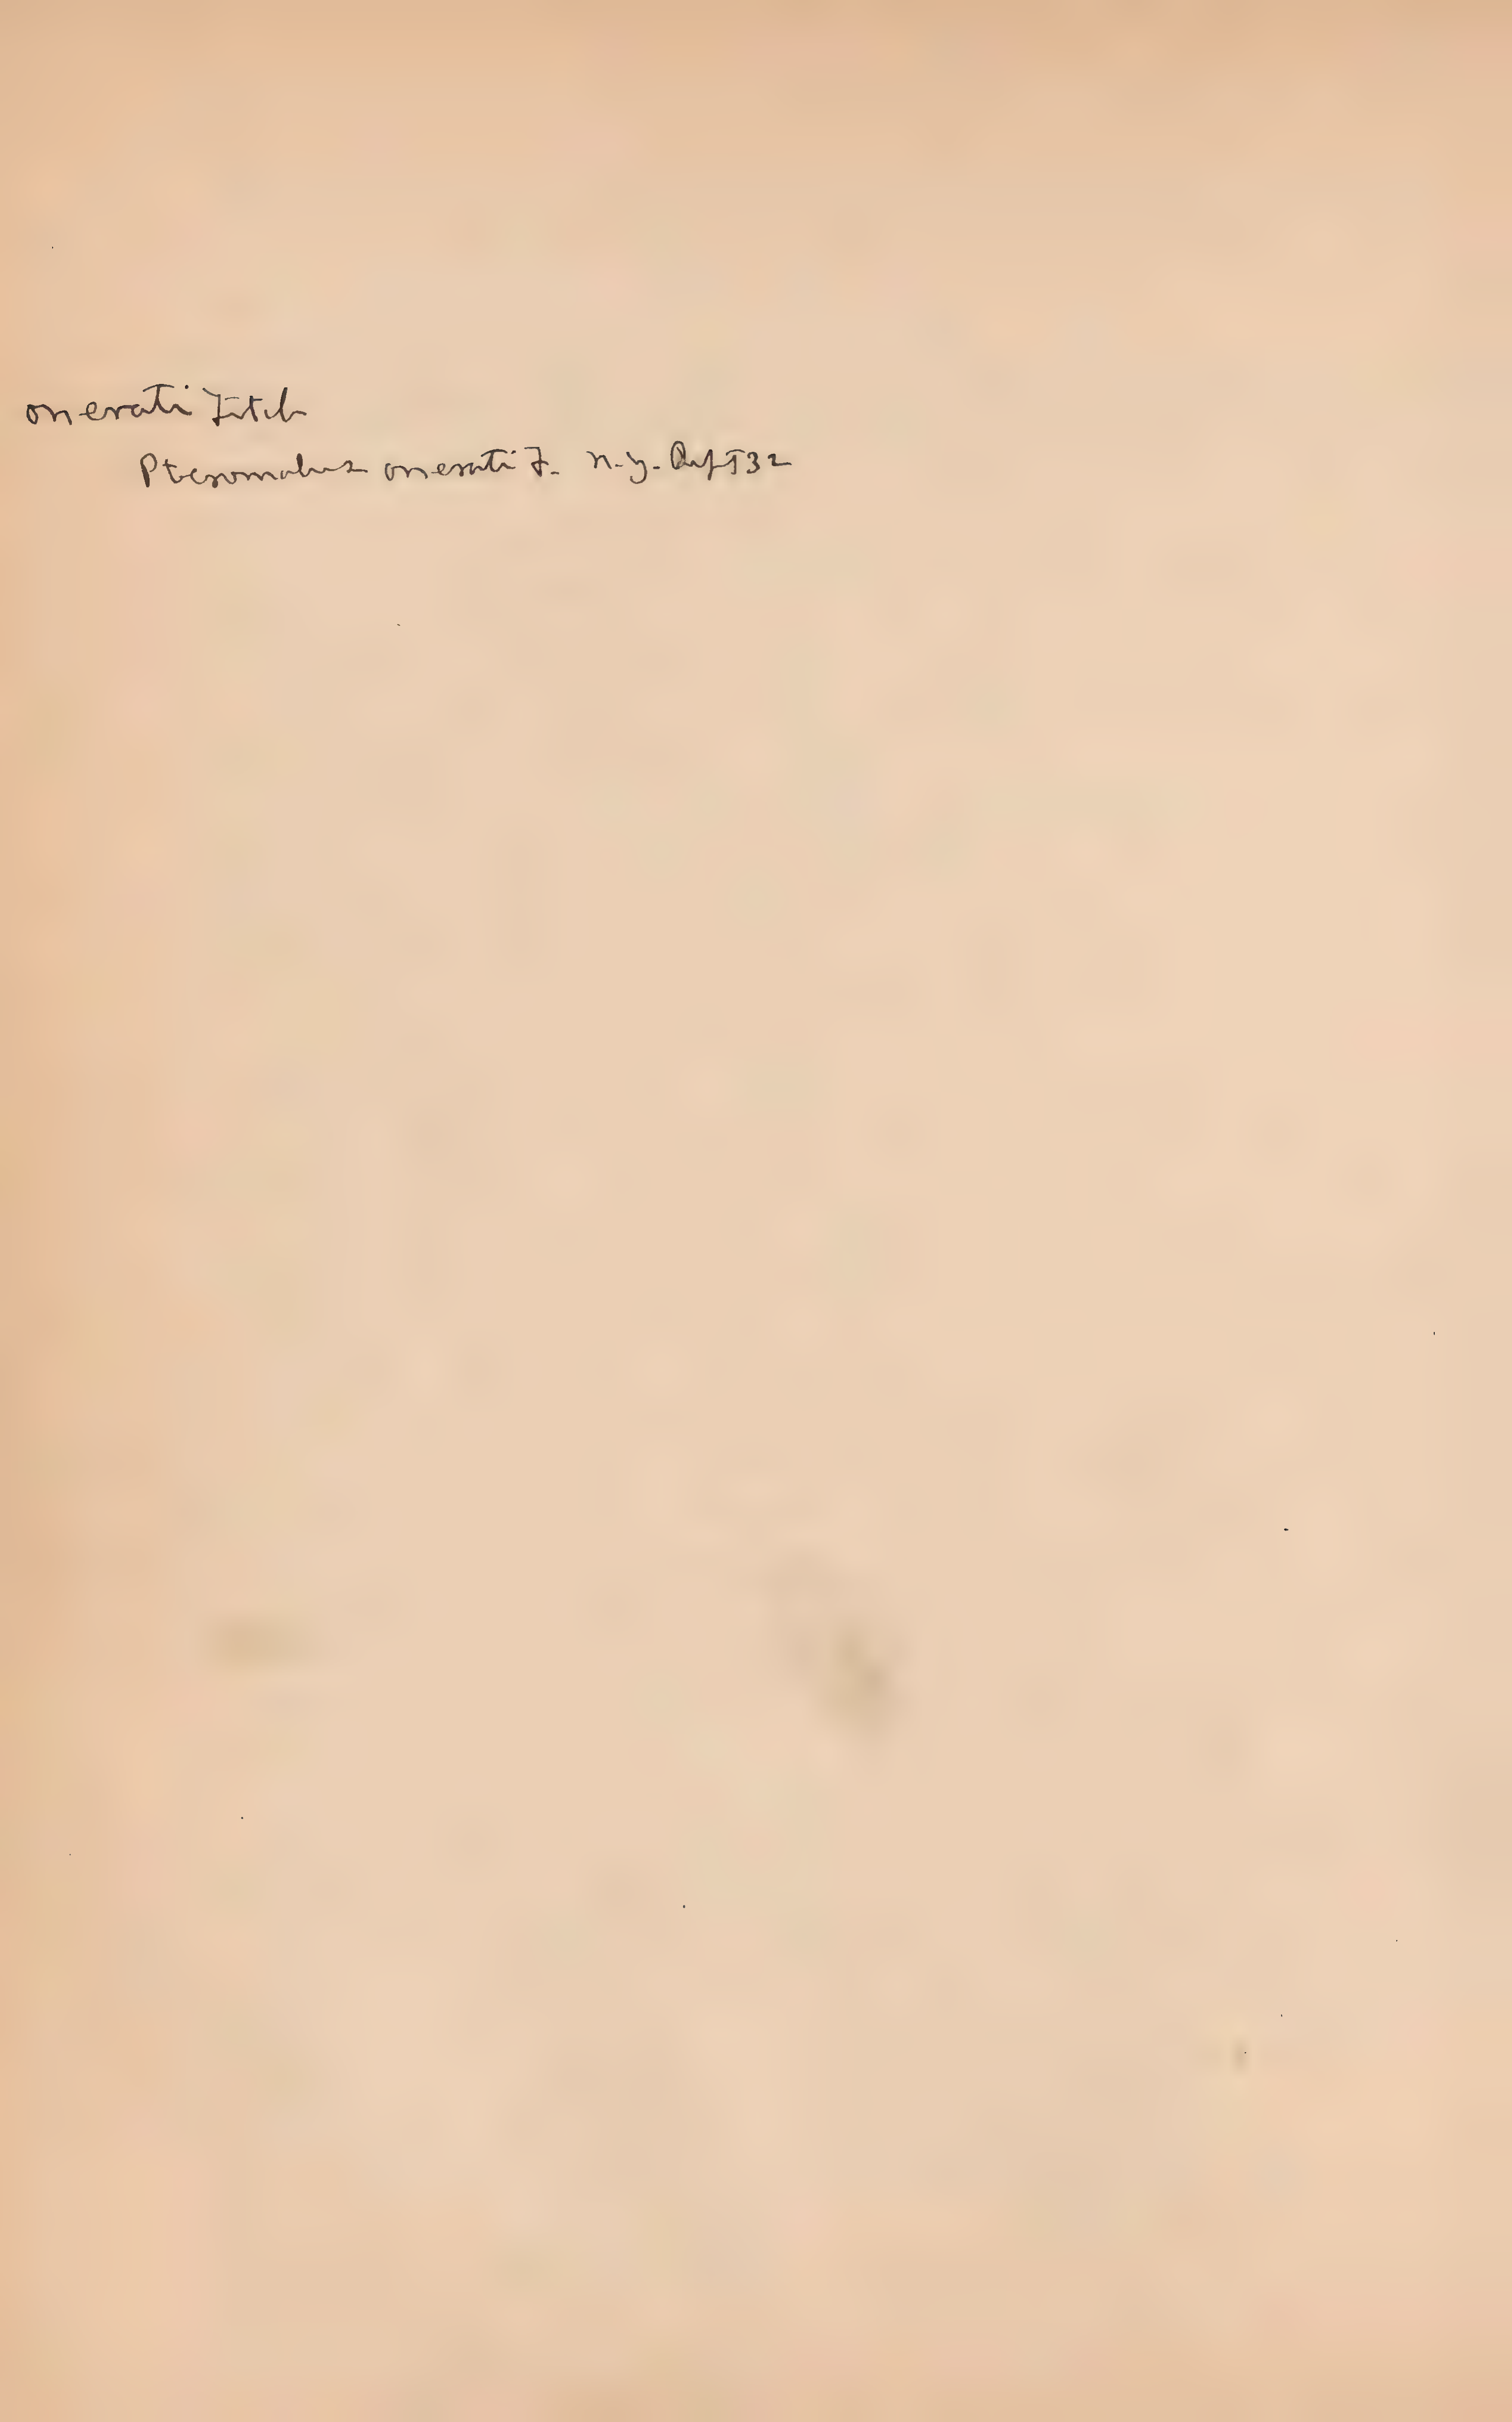 onerati Fitch
Pteromalus onerati F. N.Y. Rept 32